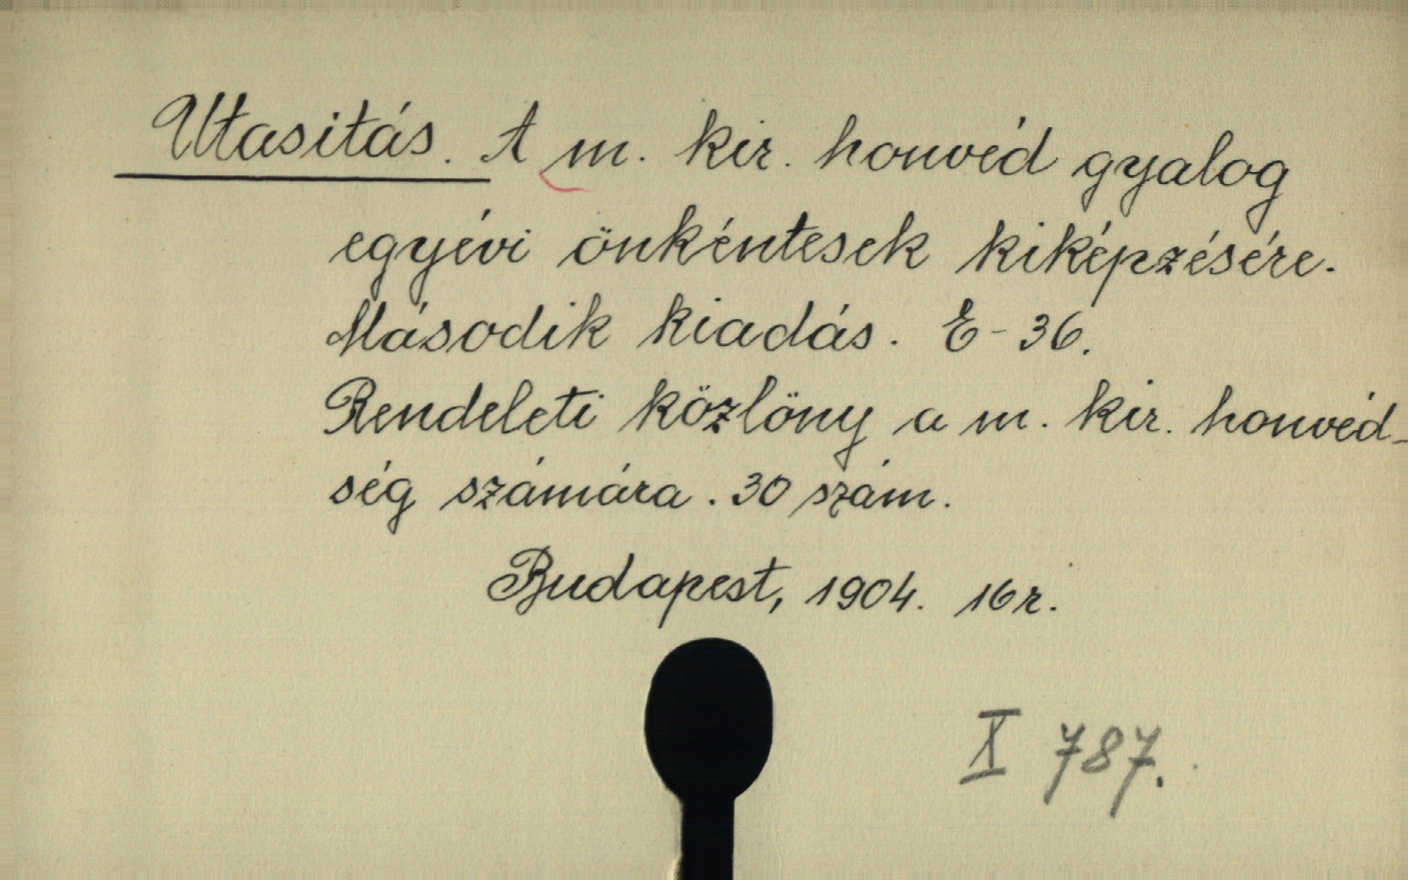 Utasitás. A m. kir. honvéd gyalog
egyévi önkéntesek kiképzésére.
Második kiadás. E-36.
Rendeleti közlöny a m. kir. honvéd-
ség számára. 30 szám.
Budapest, 1904. 16 r.
X 787.